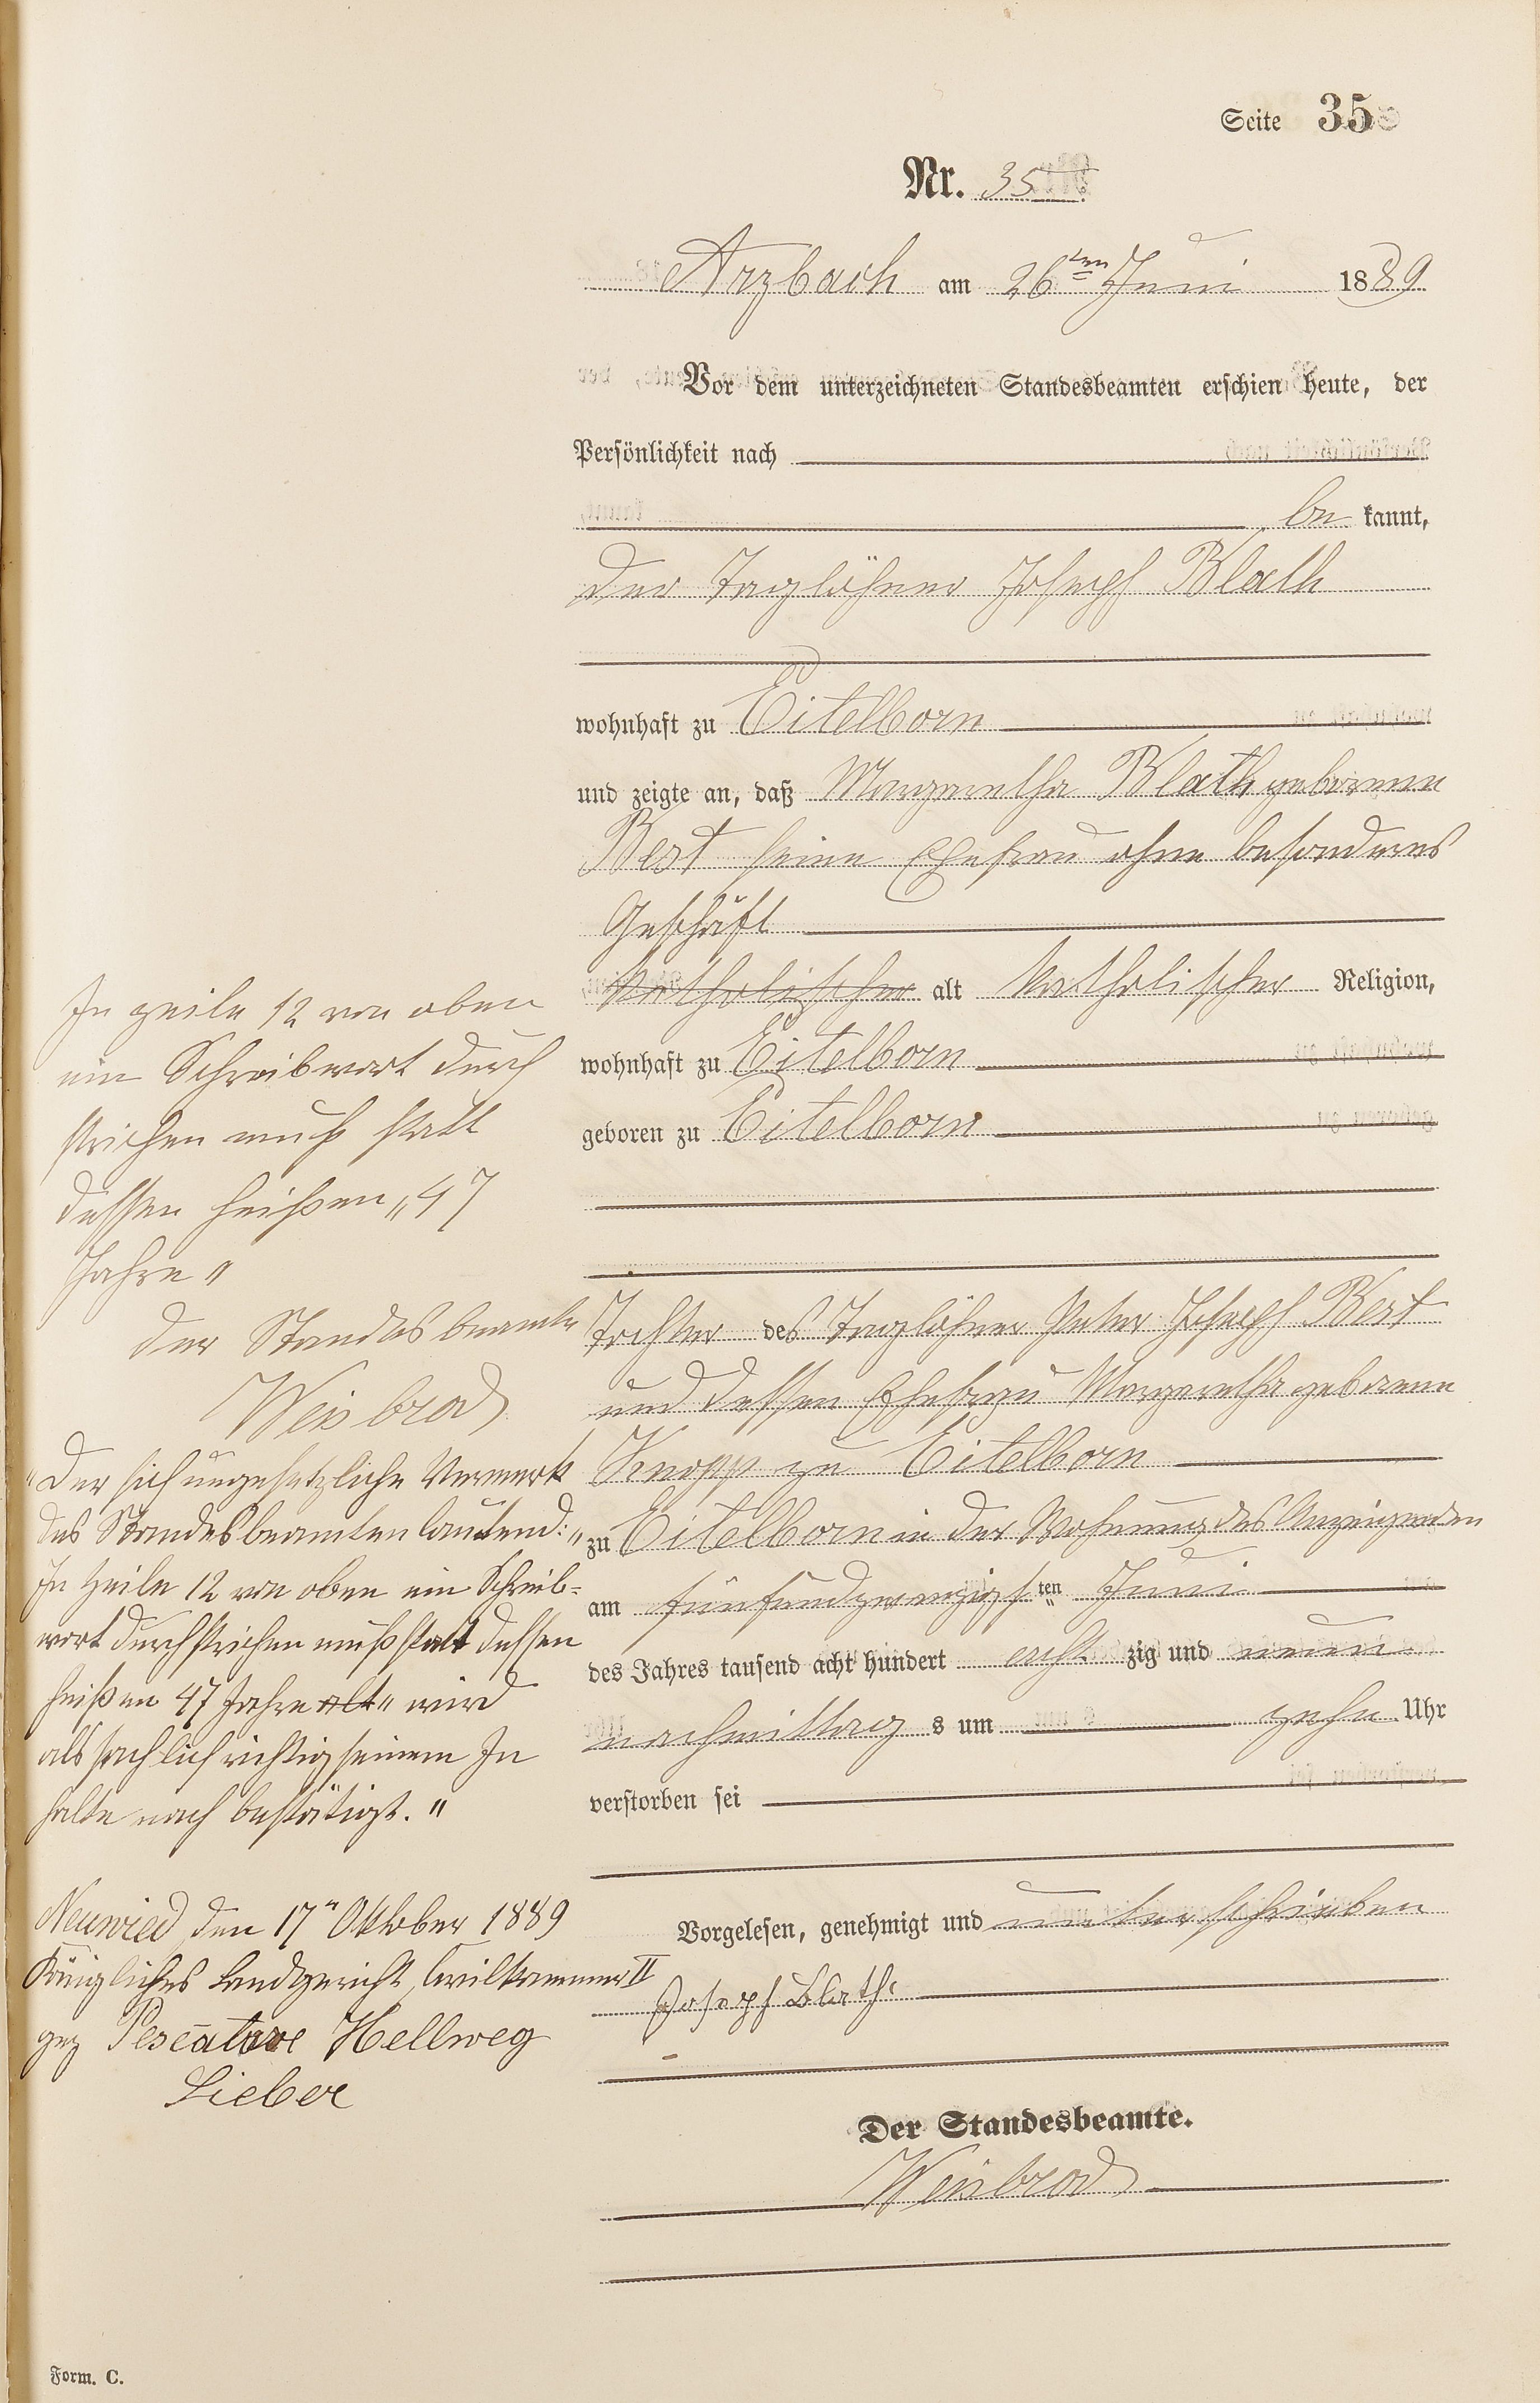 Seite 35
Nr. 35
Arzbach am 26ten Juni 1889
Vor dem unterzeichneten Standesbeamten erschien heute, der
Persönlichkeit nach
be kannt,
der Taglöhner Joseph Blath
wohnhaft zu Eitelborn
und zeigte an, daß Margaretha Blath geborenen
Best seine Ehefrau ohne besonderes
Geschäft
katholischer alt katholischer Religion,
wohnhaft zu Eitelborn
geboren zu Eitelborn
Tochter des Taglöhner Peter Joseph Best
und dessen Ehefrau Margaretha geborenen
Knopp zu Eitelborn
zu Eitelborn in der Wohnung des Anzeigenden
am fünfundzwanzigsten Juni
des Jahres tausend acht hundert acht zig und neun
nachmittag s um zehn Uhr
verstorben sei
Vorgelesen, genehmigt und unterschrieben
Joseph Blath
Der Standesbeamte.
Weisbrod
In Zeile 12 von oben
ein Schreibwort durch
strichen muß statt
dessen heißen „47
Jahre"
Der Standesbeamte
Weisbrod
"Der sich ungesetzliche Vermerk
des Standesbeamten lautend: „
In Zeile 12 von oben ein Schreib-
wort durchstrichen muß statt dessen
heißen 47 Jahre alt" wird
als sachlich richtig seinem In
halte nach bestätigt."
Neuwied, den 17n Oktober 1889
Königliches Landgericht, Civilkammer II
gez Pescatore Hellweg
Lieber
Form. C.